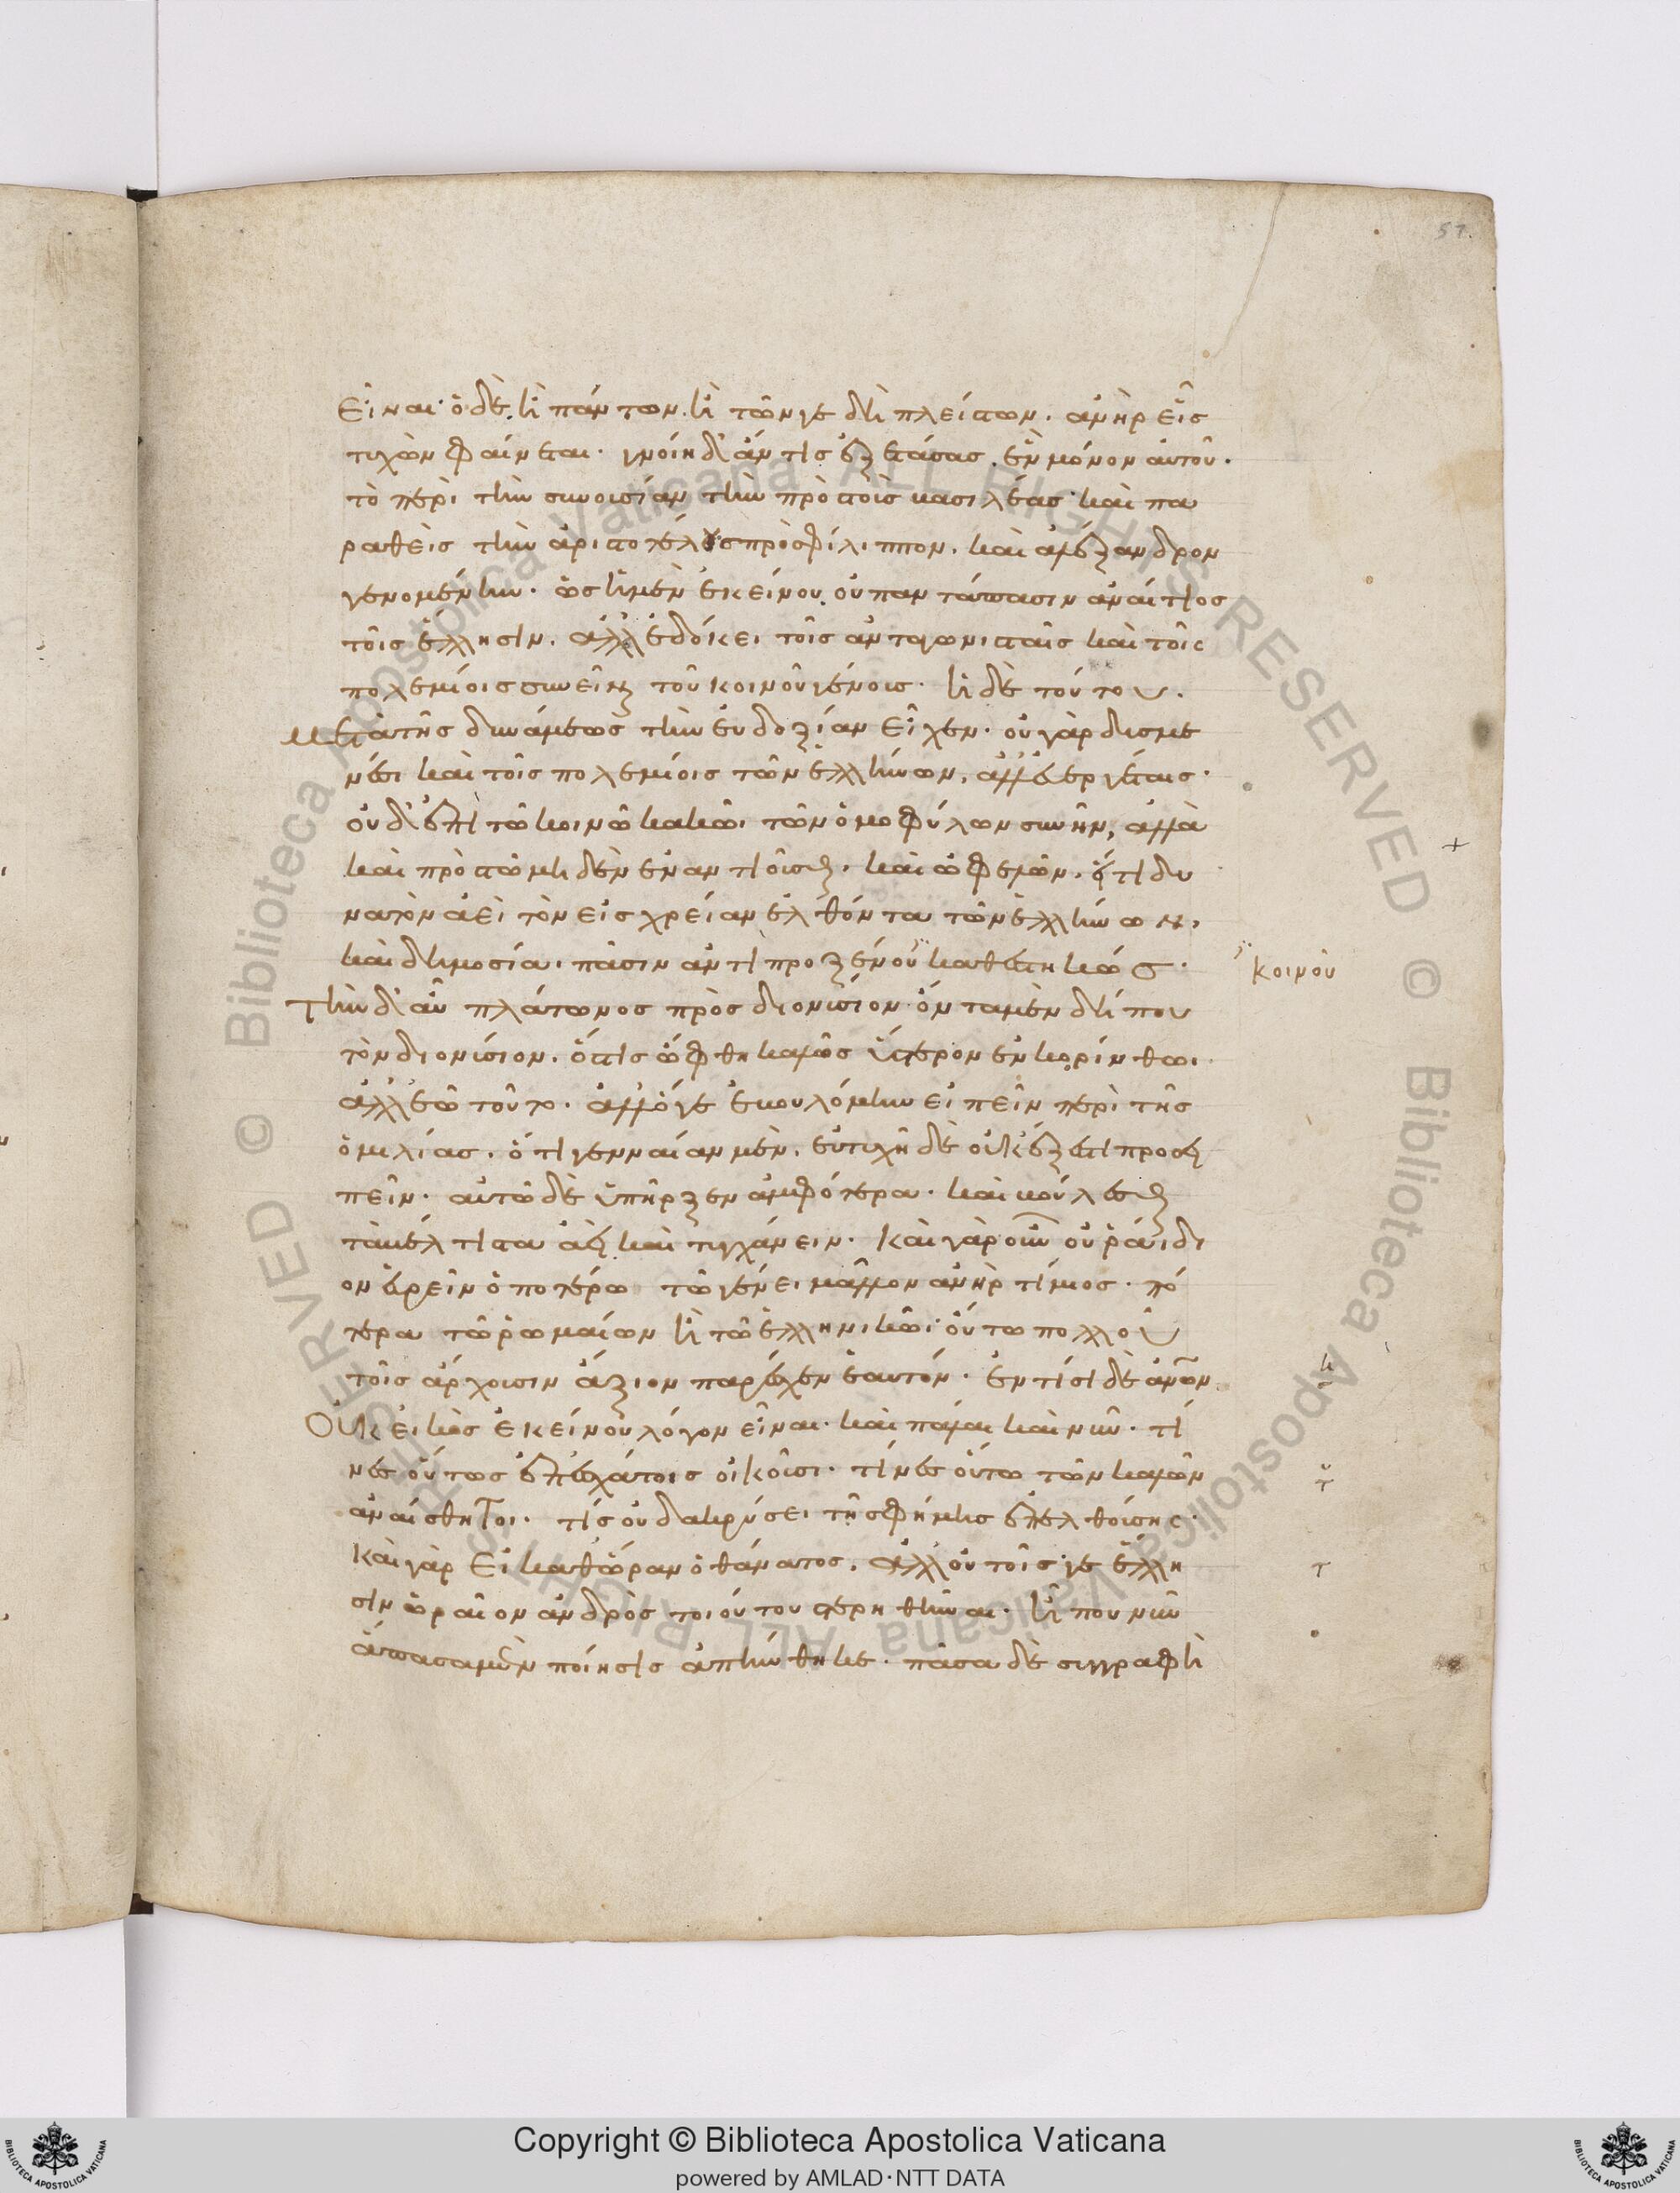 57.
εἶναι· ὁ δὲ ἢ πάντων. ἢ τῶν γε δὴ πλείστων. ἀνὴρ εἷς
τυχὼν φαίνεται. γνοίη δ' ἄν τις ἐξετάσας. ἓν μόνον αὐτοῦ.
τὸ περὶ τὴν συνουσίαν τὴν πρὸς τοὺς βασιλέας· καὶ πα
ραθεὶς τὴν ἀριστοτέλους πρὸς φίλιππον. καὶ ἀλέξανδρον
γενομένην. ὡς ἡ μὲν ἐκείνου. οὐ παντάπασιν ἀναίτιος
τοῖς ἕλλησιν. ἀλλ' ἐδόκει τοῖς ἀνταγωνισταῖς καὶ τοῖς
πολεμίοις συνεῖναι τοῦ κοινοῦ γένους. ἡ δὲ τούτου.
μετὰ τῆς δυνάμεως τὴν εὐδοξίαν εἶχεν. οὐ γὰρ δυσμε
νέσι καὶ τοῖς πολεμίοις τῶν ἑλλήνων, ἀλλ' εὐεργέταις.
οὐδ' ἐπὶ τῶ κοινῶ κακῶι τῶν ὁμοφύλων συνῆν, ἀλλὰ
καὶ πρὸς τῶ μηδὲν ἐναντιοῦσθαι. καὶ ὠφελῶν. ὅ τι δυ
νατὸν ἀεὶ τὸν εἰς χρείαν ἐλθόντα τῶν ἑλλήνων,
καὶ δημοσίαι πᾶσιν ἀντὶ προξένου καθεστηκώς.
κοινοῦ
τὴν δ' αὖ πλάτωνος πρὸς διονύσιον· ὄντα μὲν δή που
τὸν διονύσιον. ὅστις ὤφθη καλῶς ὕστερον ἐν κορίνθωι.
ἀλλ' ἐῶ τοῦτο. ἀλλ' ὅ γε ἐβουλόμην εἰπεῖν περὶ τῆς
ὁμιλίας. ὅτι γενναίαν μὲν. εὐτυχῆ δὲ οὐκ ἔξεστι προσει
πεῖν. αὐτῶ δὲ ὑπῆρξεν ἀμφότερα. καὶ βούλεσθαι
τὰ βέλτιστα ἀεὶ καὶ τυγχάνειν. καὶ γὰρ οὖν οὐ ῥάιδι
ον εὑρεῖν ὁποτέρω τῶ γένει μᾶλλον ἀνὴρ τίμιος. πό
τερα τῶ ῥωμαίων ἢ τῶ ἑλληνικῶι· οὕτω πολλοῦ
τοῖς ἄρχουσιν ἄξιον παρέσχεν ἑαυτόν. ἐν τίσι δὲ ἀνθρώπων
οὐκ εἰκὸς ἐκείνου λόγον εἶναι. καὶ πάλαι καὶ νῦν. τί
νες οὕτως ἐπ' ἐσχάτοις οἰκοῦσι. τίνες οὕτω τῶν καλῶν
ἀναίσθητοι. τίς οὐ δακρύσει τῆς φήμης ἐπελθούσης.
καὶ γὰρ εἰ καθ' ὥραν ὁ θάνατος, ἀλλ' οὐ τοῖς γε ἕλλη
σιν ὡραῖον ἀνδρὸς τοιούτου στερηθῆναι. ἦ που νῦν
ἅπασα μὲν ποίησις ἀπήνθηκε. πᾶσα δὲ συγγραφὴ
Copyright © Biblioteca Apostolica Vaticana
powered by AMLAD·NTT DATA